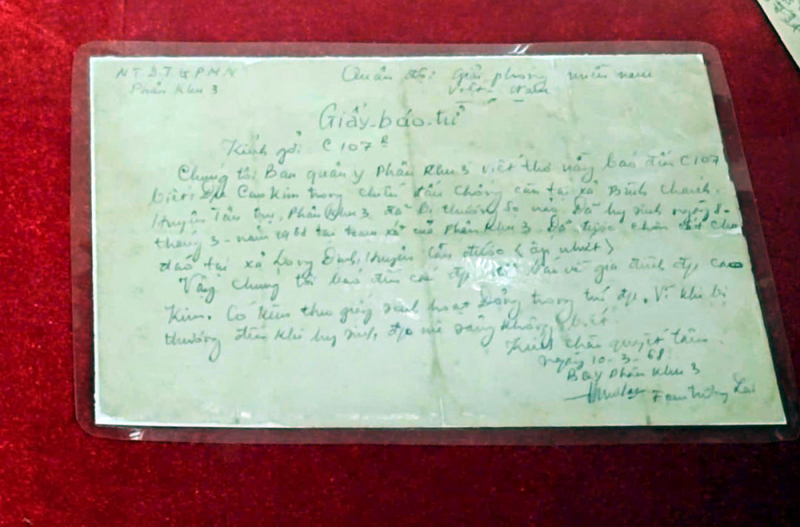 M.T.D.T.G.P.M.N Quân đội giải phóng miền nam
Phân khu 3 Việt Nam
Giấy báo tử
Kính gởi C107
Chúng tôi Ban quân y Phân khu 3 viết thơ nầy báo đến C107
biết: Cao Kim trong chiến đấu chống càn tại xã Bình Chánh.
Huyện Tân trụ, Phân khu 3 đã bị thương sọ não. Đã hy sinh ngày 8-
tháng 3 - năm 1968 tại trạm xá của Phân khu 3. Đã được chôn cất chu
đáo tại xã Long Định, Huyện Cần đước
Vậy Chúng tôi báo đến các và gia đình đ/c Cao
Kim. Có kèm theo giấy sinh hoạt Đảng trong đ/c. Vì khi bị
thương đến khi hy sinh, đ/c mê sảng không biết.
Kính chào quyết tâm
ngày 10-3-68
BQY Phân khu 3